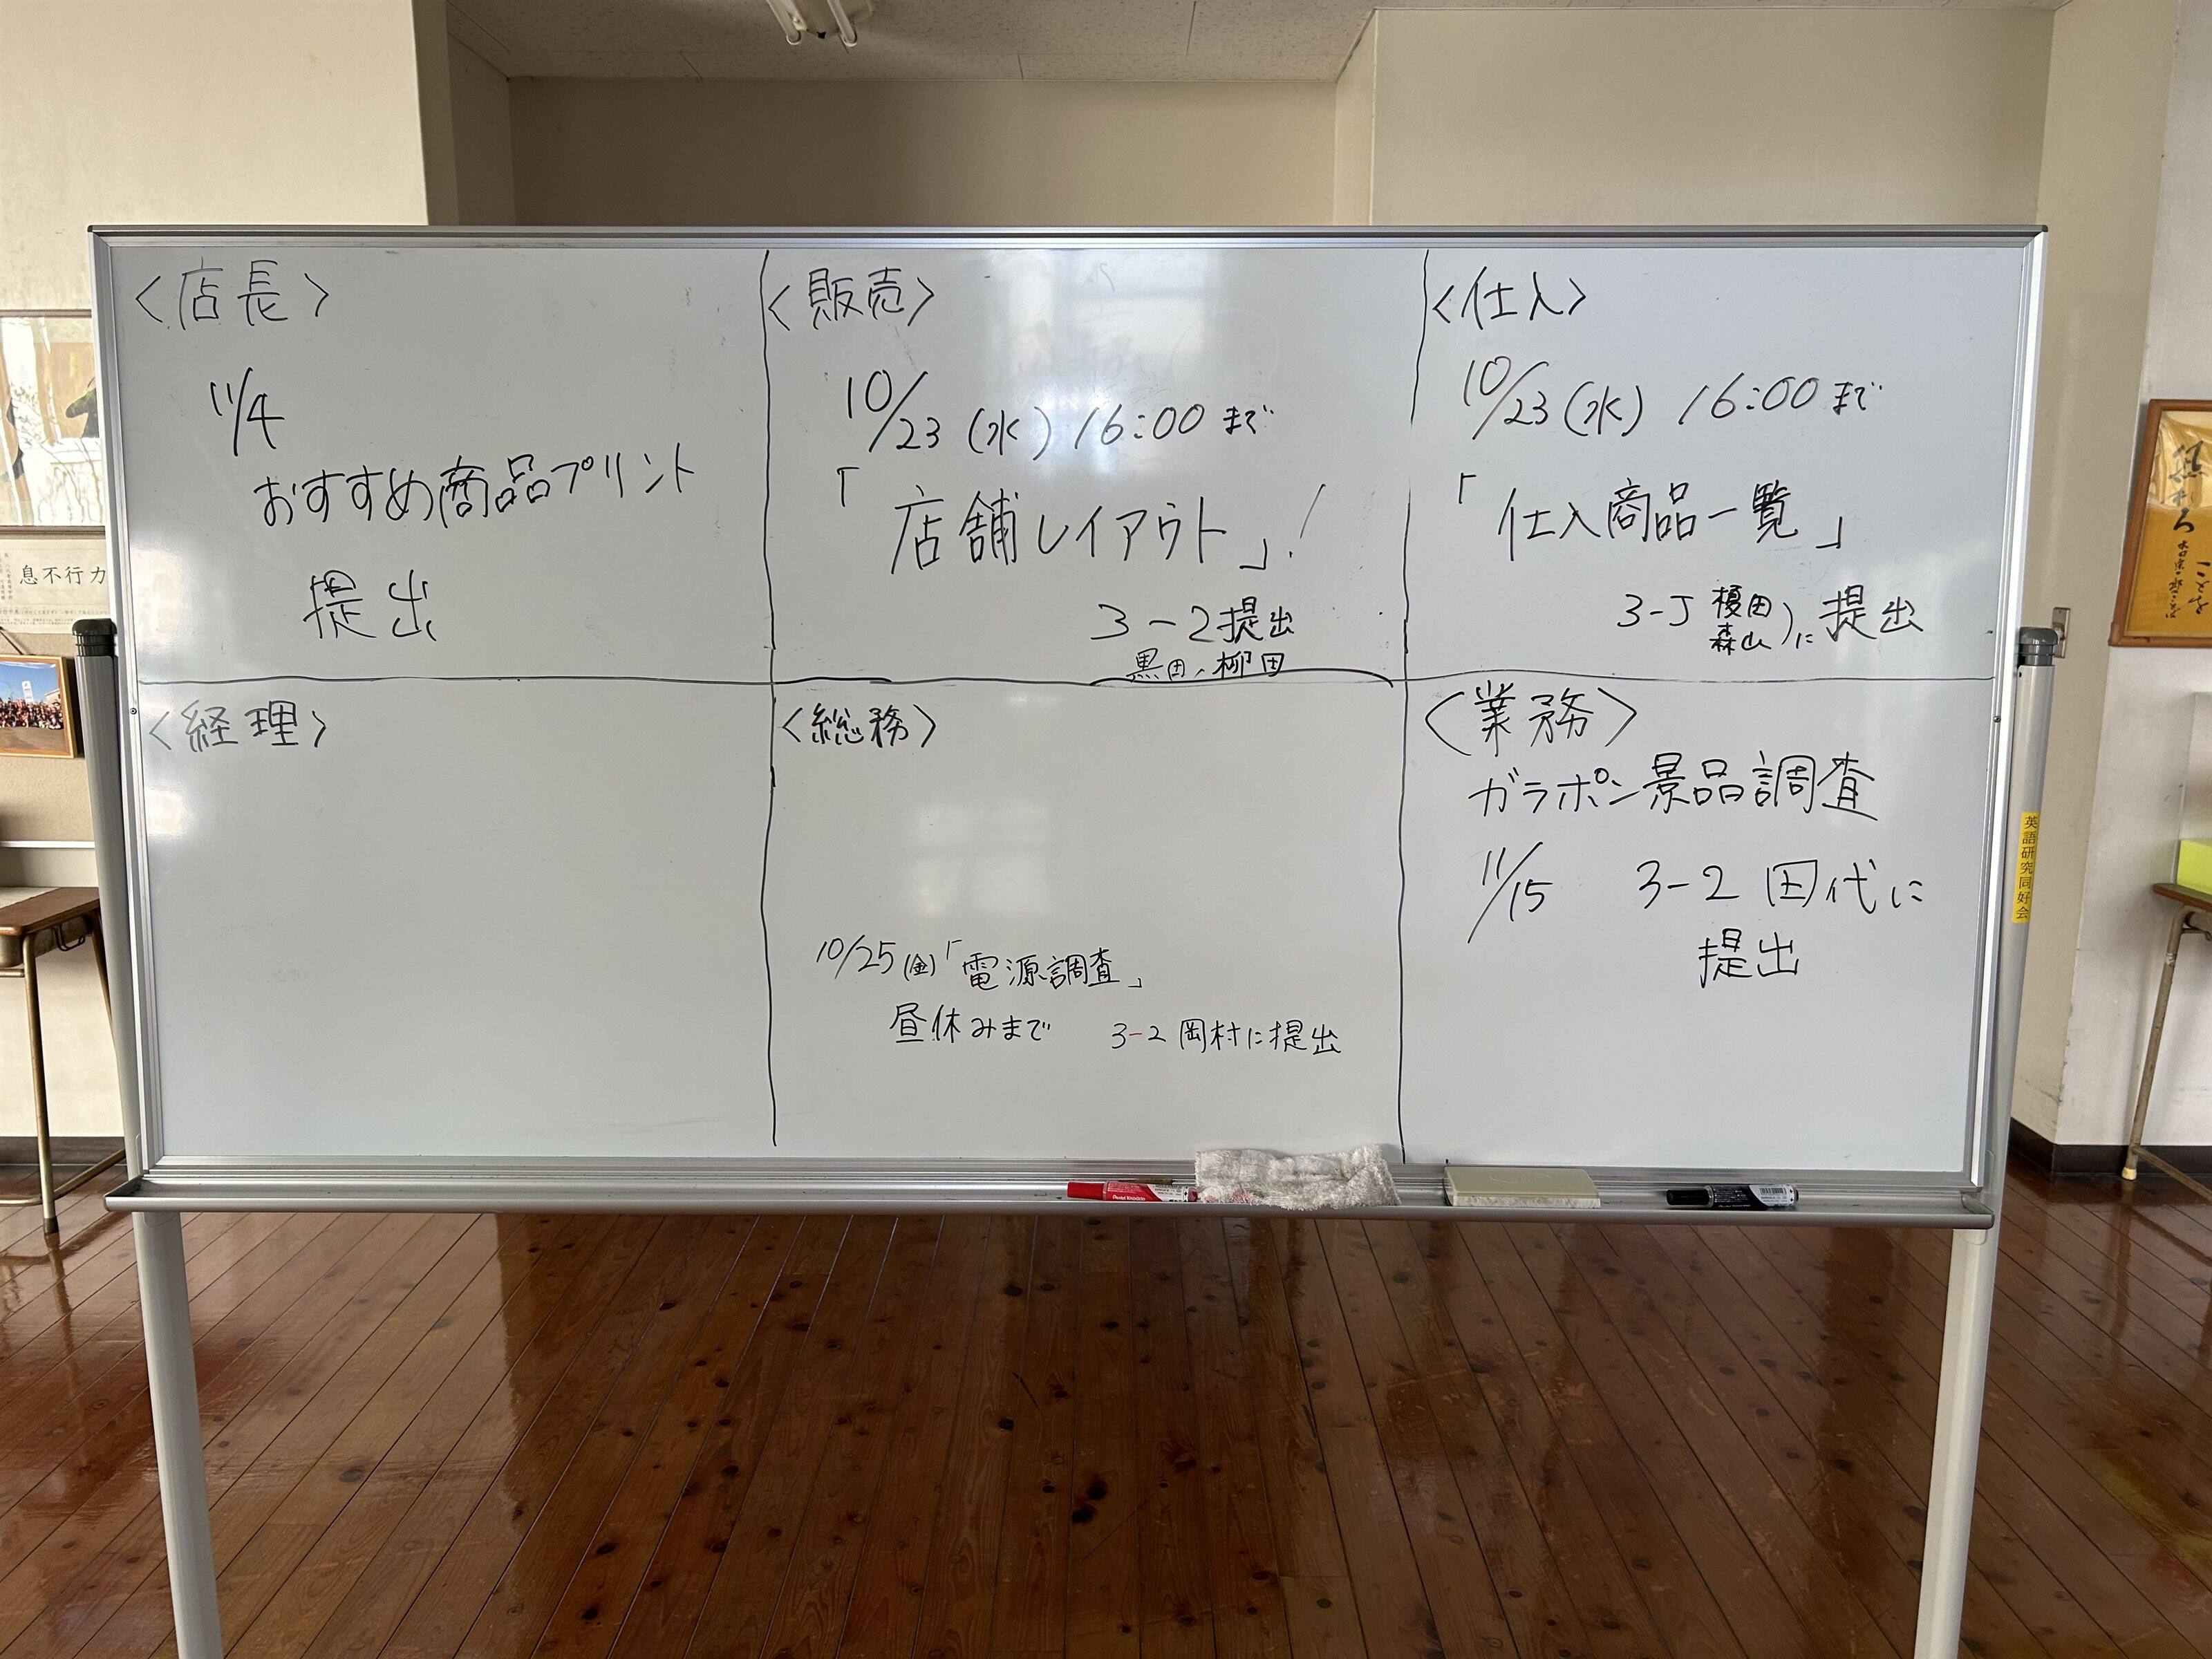 〈店長〉
11/4
おすすめ商品プリント
提出
〈販売〉
10/23(水)16:00まで
「店舗レイアウト」!
3-2提出
黒田、柳田
〈仕入〉
10/23(水) 16:00まで
「仕入商品一覧」
3-J 榎田
森山)に提出
〈経理〉
〈総務〉
10/25(金)「電源調査」
昼休みまで 3-2 岡村に提出
〈業務〉
ガラポン景品調査
11/15 3-2 田代に
提出
英語研究同好会
息不行力